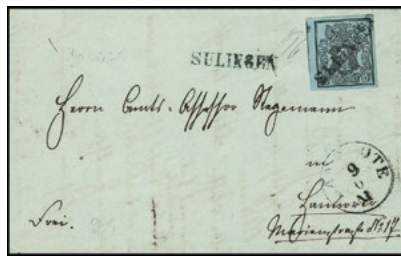 SULINGEN
Herrn Amts-Assessor Stegemann
in
Hannover
Marienstraße No 17.
Frei.